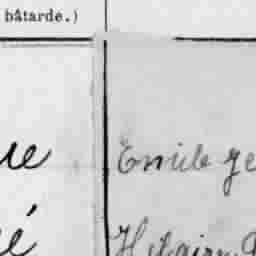 bâtarde.)
ue Emile ge
é Hilaire